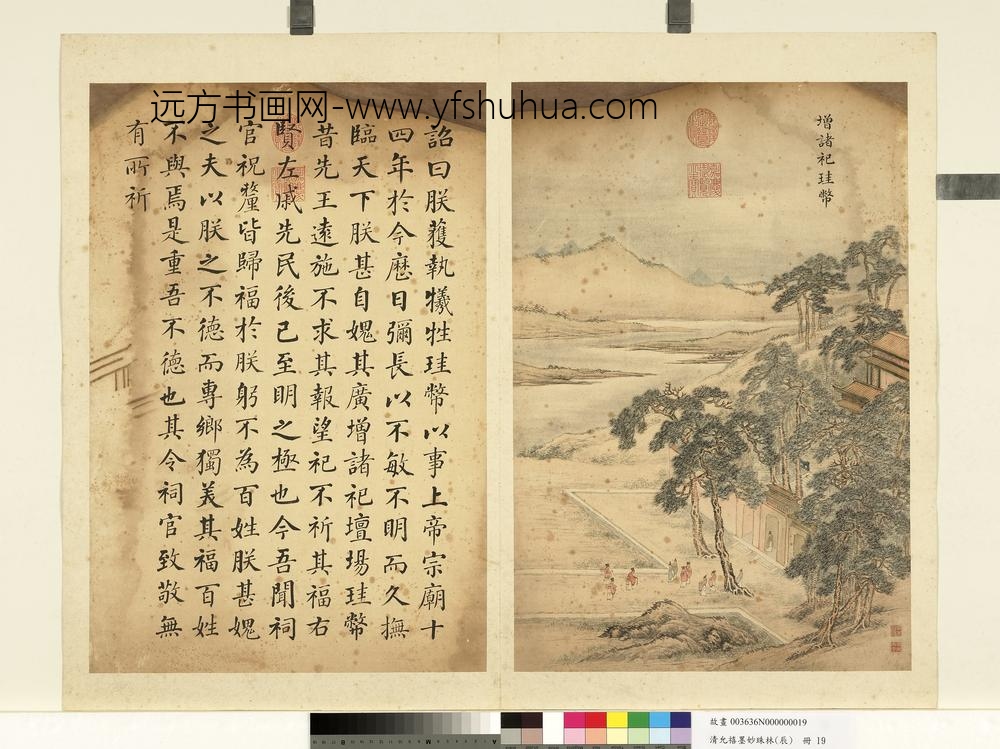 远方书画网-www.yfshuhua.com
增諸祀珪幣
詔曰朕獲執犧牲珪幣以事上帝宗廟十
四年於今歷日彌長以不敏不明而久撫
臨天下朕甚自媿其廣增諸祀壇場珪幣
昔先王遠施不求其報望祀不祈其福右
賢左戚先民後己至明之極也今吾聞祠
官祝釐皆歸福於朕躬不為百姓朕甚媿
之夫以朕之不德而專鄉獨美其福百姓
不與焉是重吾不德也其令祠官致敬無
有所祈
故畫 003636N000000019
清允禧墨妙珠林(辰) 冊 19